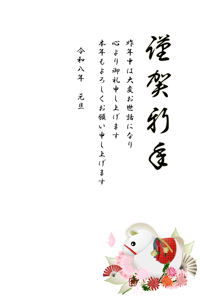 謹賀新年
昨年中は大変お世話になり
心より御礼申し上げます
本年もよろしくお願い申し上げます
令和八年　元旦